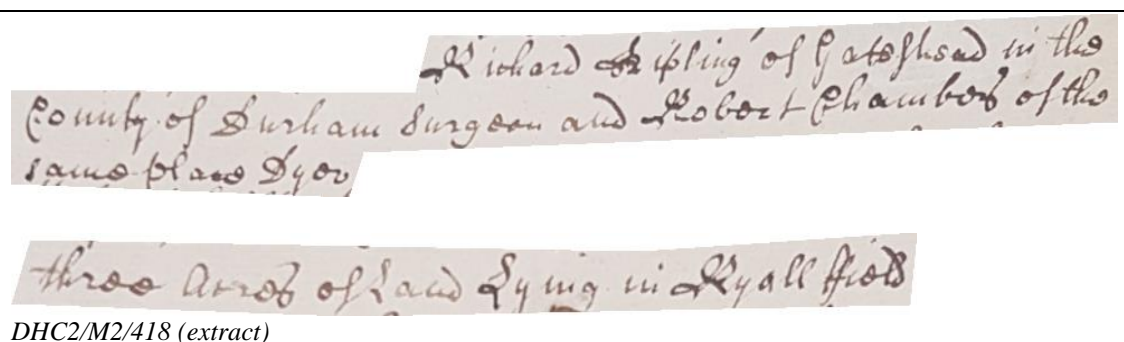 Richard Kipling of Gateshead in the
County of Durham Surgeon and Robert Chambers of the
same place Dyer
three Acres of Land Lying in Ryall ffield
DHC2/M2/418 (extract)